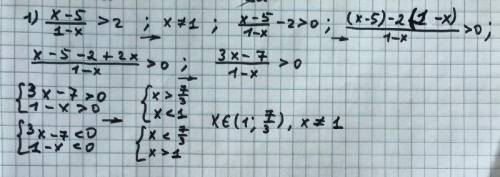 1) (x-5)/(1-x) > 2 ; x ≠ 1 ; (x-5)/(1-x) - 2 > 0 ; → ((x-5)-2(1-x))/(1-x) > 0 ;
(x-5-2+2x)/(1-x) > 0 ; → (3x-7)/(1-x) > 0
{3x-7>0 {x > 7/3
{1-x>0 → {x<1 x∈(1; 7/3), x ≠ 1
{3x-7<0 {x < 7/3
{1-x<0 {x>1